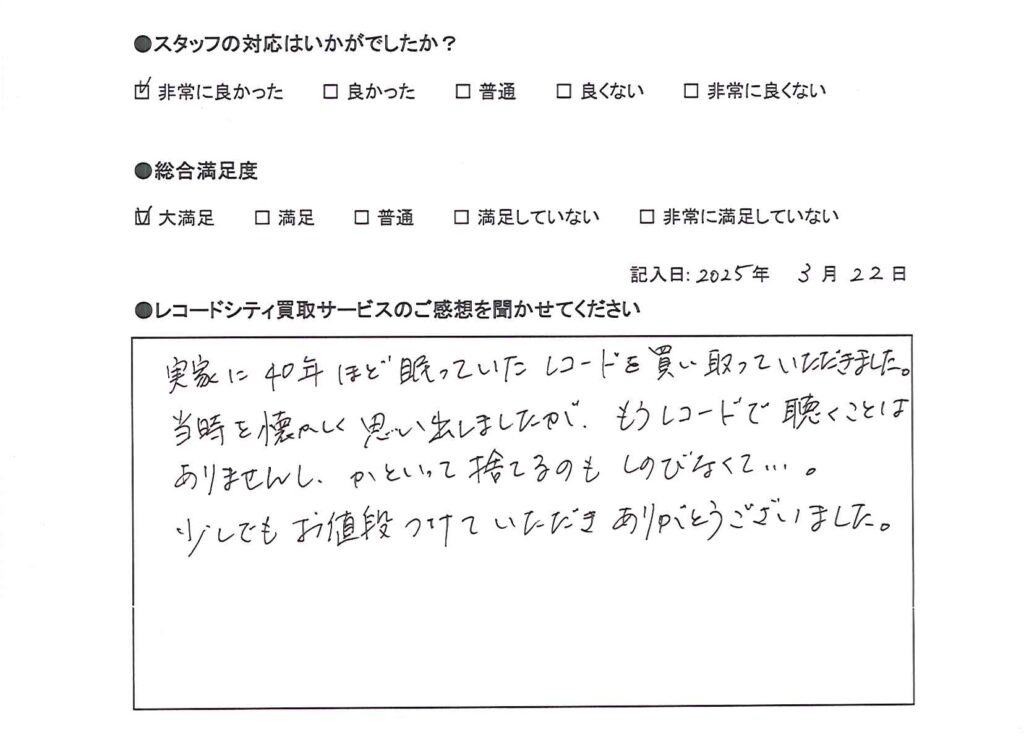 ●スタッフの対応はいかがでしたか？
☑ 非常に良かった　□ 良かった　□ 普通　□ 良くない　□ 非常に良くない
●総合満足度
☑ 大満足　□ 満足　□ 普通　□ 満足していない　□ 非常に満足していない
記入日: 2025年 3月 22日
●レコードシティ買取サービスのご感想を聞かせてください
実家に40年ほど眠っていたレコードを買い取っていただきました。
当時を懐かしく思い出しましたが、もうレコードで聴くことは
ありませんし、かといって捨てるのもしのびなくて…。
少しでもお値段つけていただきありがとうございました。